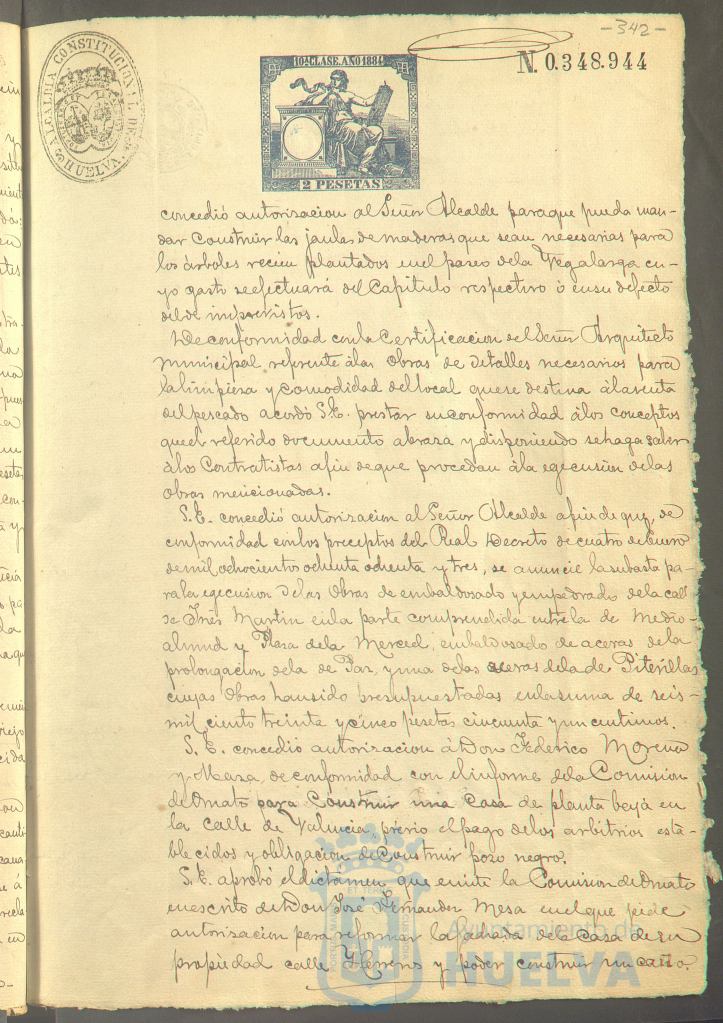 -342-
ALCALDIA CONSTITUCIONAL DE HUELVA
10ª CLASE. AÑO 1884
2 PESETAS
N. 0.348.944
concedió autorizacion al Señor Alcalde paraque pueda man-
dar construir las jaulas de maderas que sean necesarias para
los árboles recien plantados en el paseo dela Vegalarga cu-
yo gasto se efectuará del Capitulo respectivo ó ensu defecto
del de imprevistos.
De conformidad con la Certificacion del Señor Arquitecto
municipal, referente álas obras de detalles necesarios para
la limpieza y comodidad del local quese destina álaventa
del pescado acordó S.E. prestar suconformidad álos conceptos
queel referido documento abraza y disponiendo sehaga saber
álos Contratistas afin deque procedan ála egecusion delas
obras mencionadas.
S.E. concedió autorizacion al Señor Alcalde afin de que, de
conformidad conlos preceptos del Real Decreto de cuatro de Enero
de mil ochocientos ochenta ochenta y tres, se anuncie la subasta pa-
rala egecusion delas obras de embaldosado y empedrado dela calle
de Inés Martin enla parte comprendida entrela de Medio
almud y Plaza dela Merced, embaldosado de aceras dela
prolongacion dela de Paz, y una delas aceras dela de Piterillas
cuyas obras hansido presupuestadas enlasuma de seis-
mil ciento treinta y cinco pesetas cincuenta y un centimos.
S.E. concedió autorizacion á Don Federico Moreno
y Maza, de conformidad con el informe dela Comision
de Ornato para construir una casa de planta baja en
la calle de Valencia, prévio el pago delos arbitrios esta-
blecidos y obligacion de construir pozo negro.
S.E. aprobó el dictamen que emite la Comision de Ornato
en escrito de Don José Fernandez Mesa enelque pide
autorizacion para reformar la fachada dela casa de su
propiedad calle Herrero y poder construir un caño.
Ayuntamiento de
HUELVA